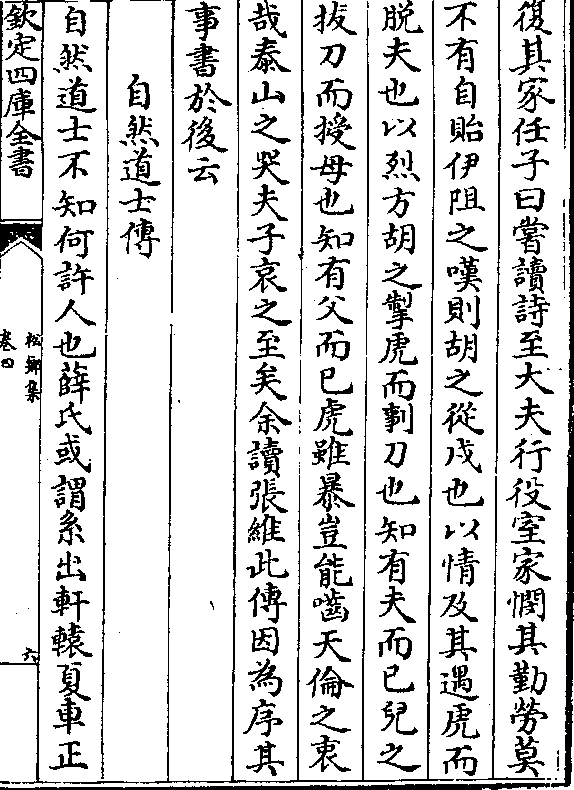 復其家任子曰嘗讀詩至大夫行役室家憫其勤勞莫
不有自貽伊阻之嘆則胡之從戍也以情及其遇虎而
脱夫也以烈方胡之掣虎而剚刀也知有夫而已兒之
拔刀而授母也知有父而已虎雖暴豈能噛天倫之衷
哉泰山之哭夫子哀之至矣余讀張維此傳因為序其
事書於後云
自然道士傳
自然道士不知何許人也薛氏或謂系出軒轅夏車正
欽定四庫全書
松鄉集
卷四
六